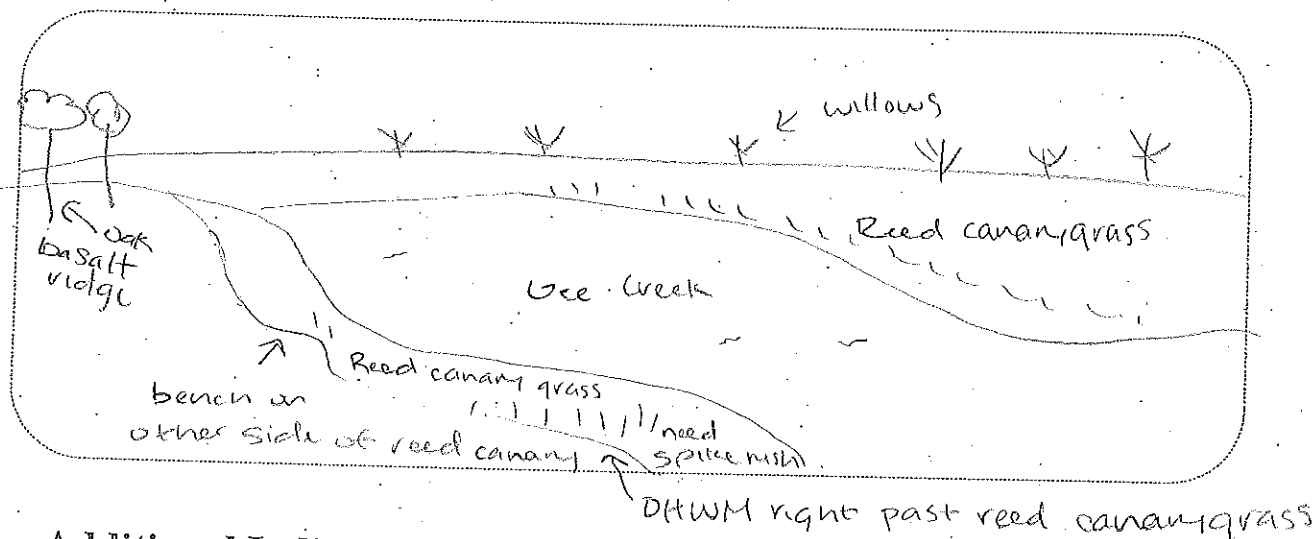 willows
oak
basalt
ridge
Reed canarygrass
Gee Creek
Reed canary grass
bench on
other side of reed canary
need
spike rush
OHWM right past reed canarygrass